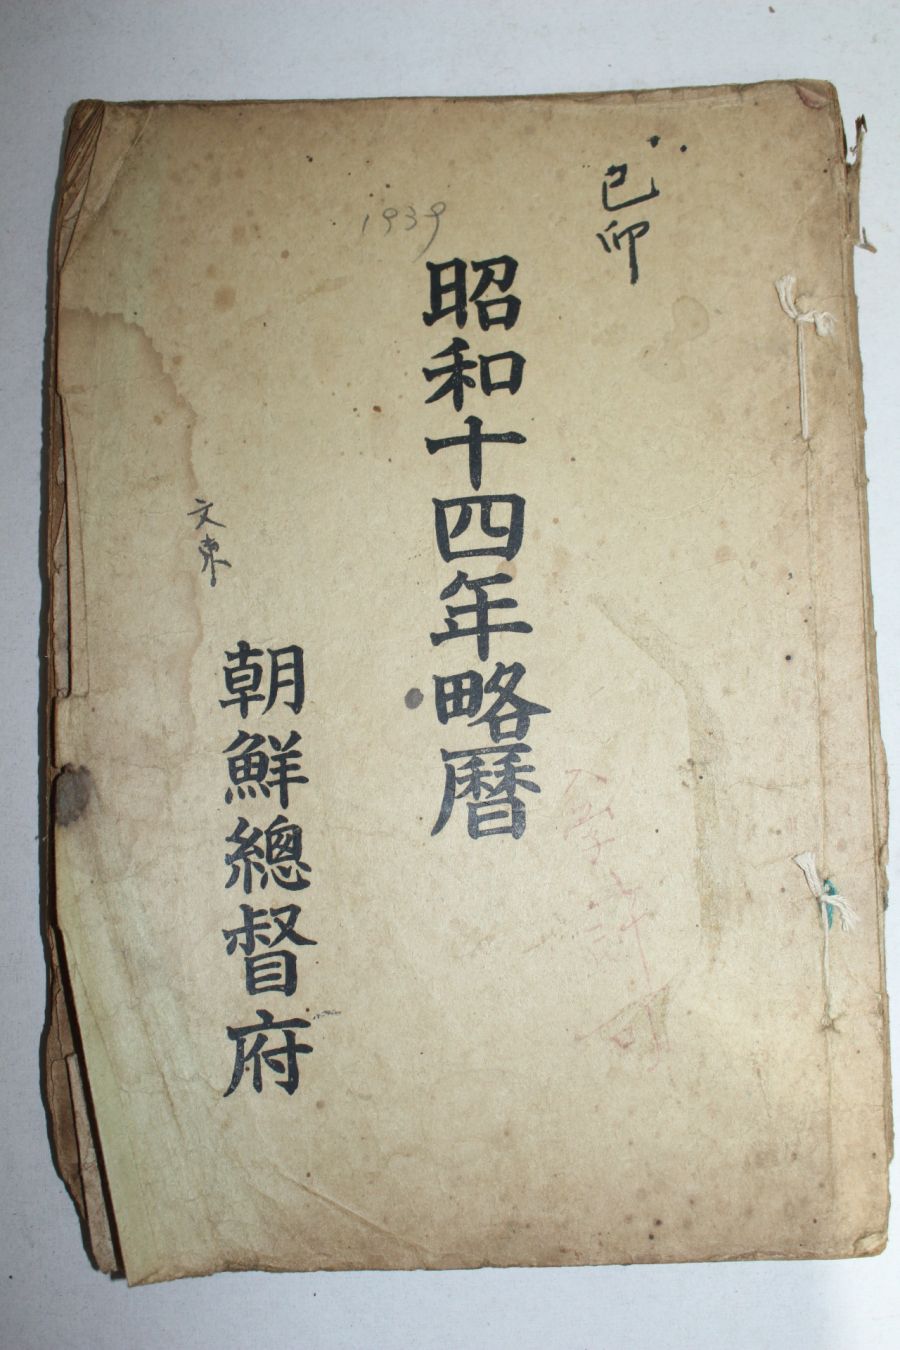 己卯
1939
昭和十四年略曆
朝鮮總督府